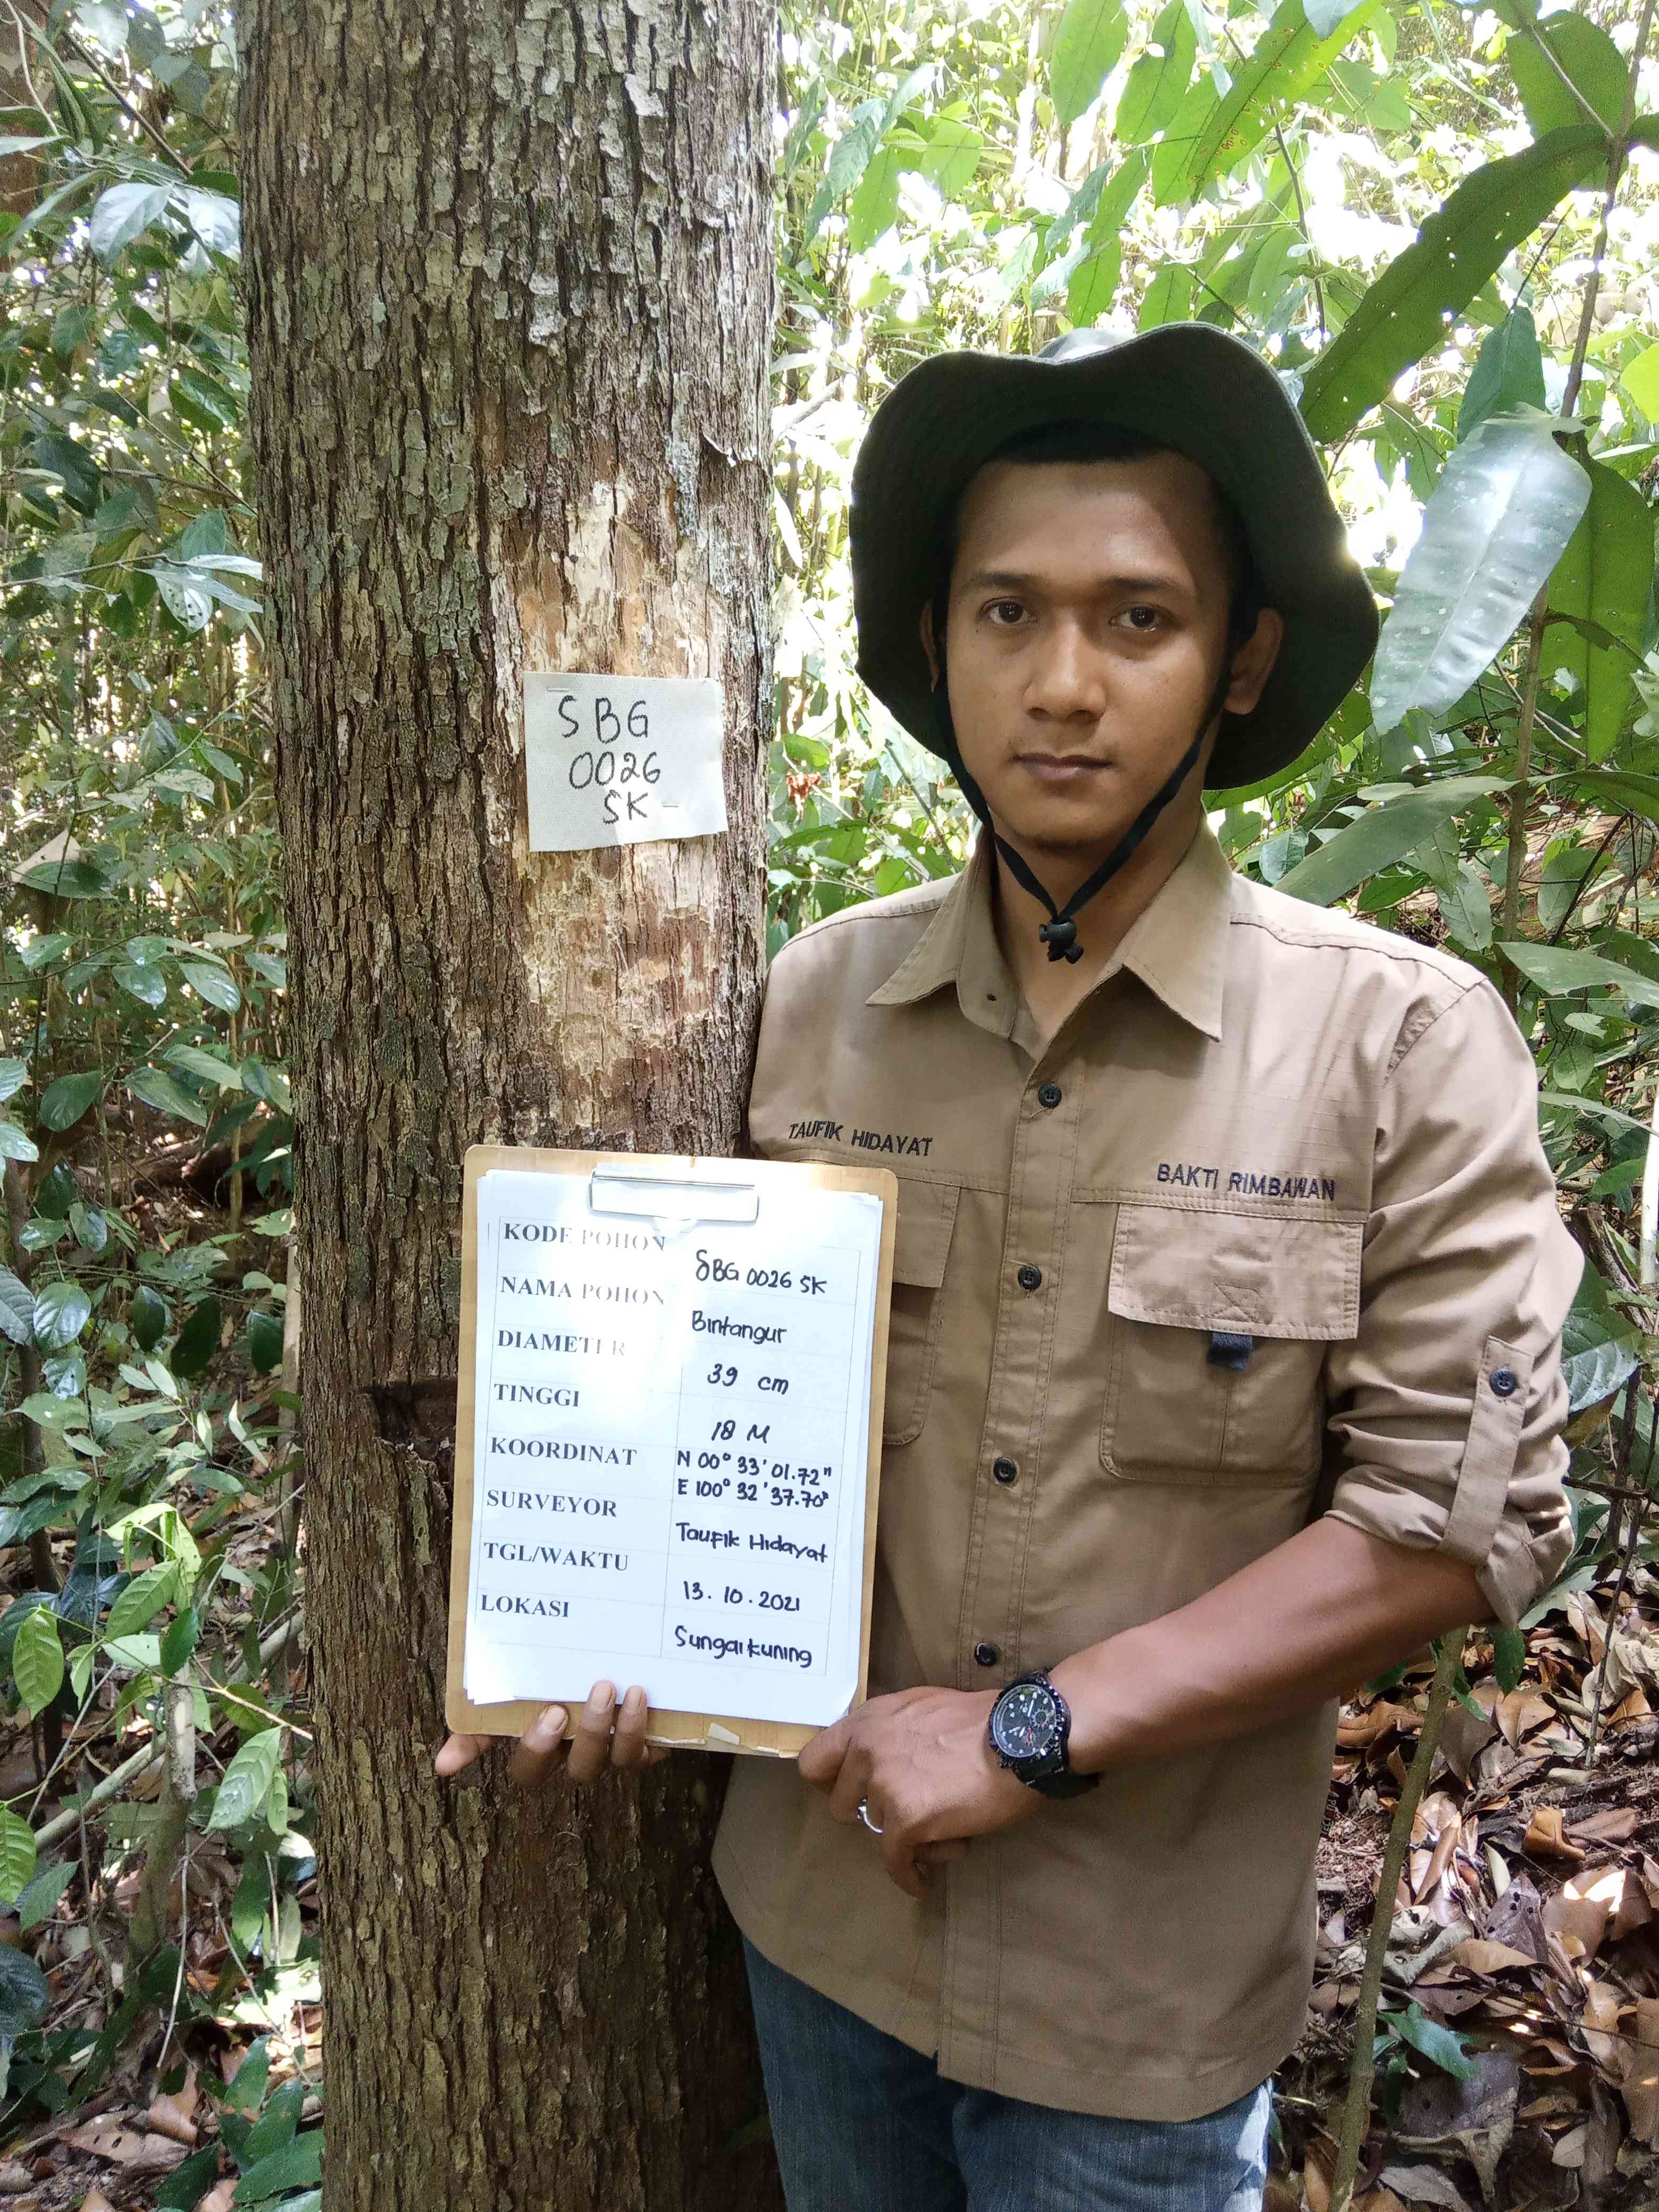 SBG
0026
SK
TAUFIK HIDAYAT
BAKTI RIMBAWAN
KODE POHON SBG 0026 SK
NAMA POHON Bintangur
DIAMETER 39 cm
TINGGI 18 M
KOORDINAT N 00° 33' 01.72"
E 100° 32' 37.70"
SURVEYOR Taufik Hidayat
TGL/WAKTU 13.10.2021
LOKASI Sungai kuning